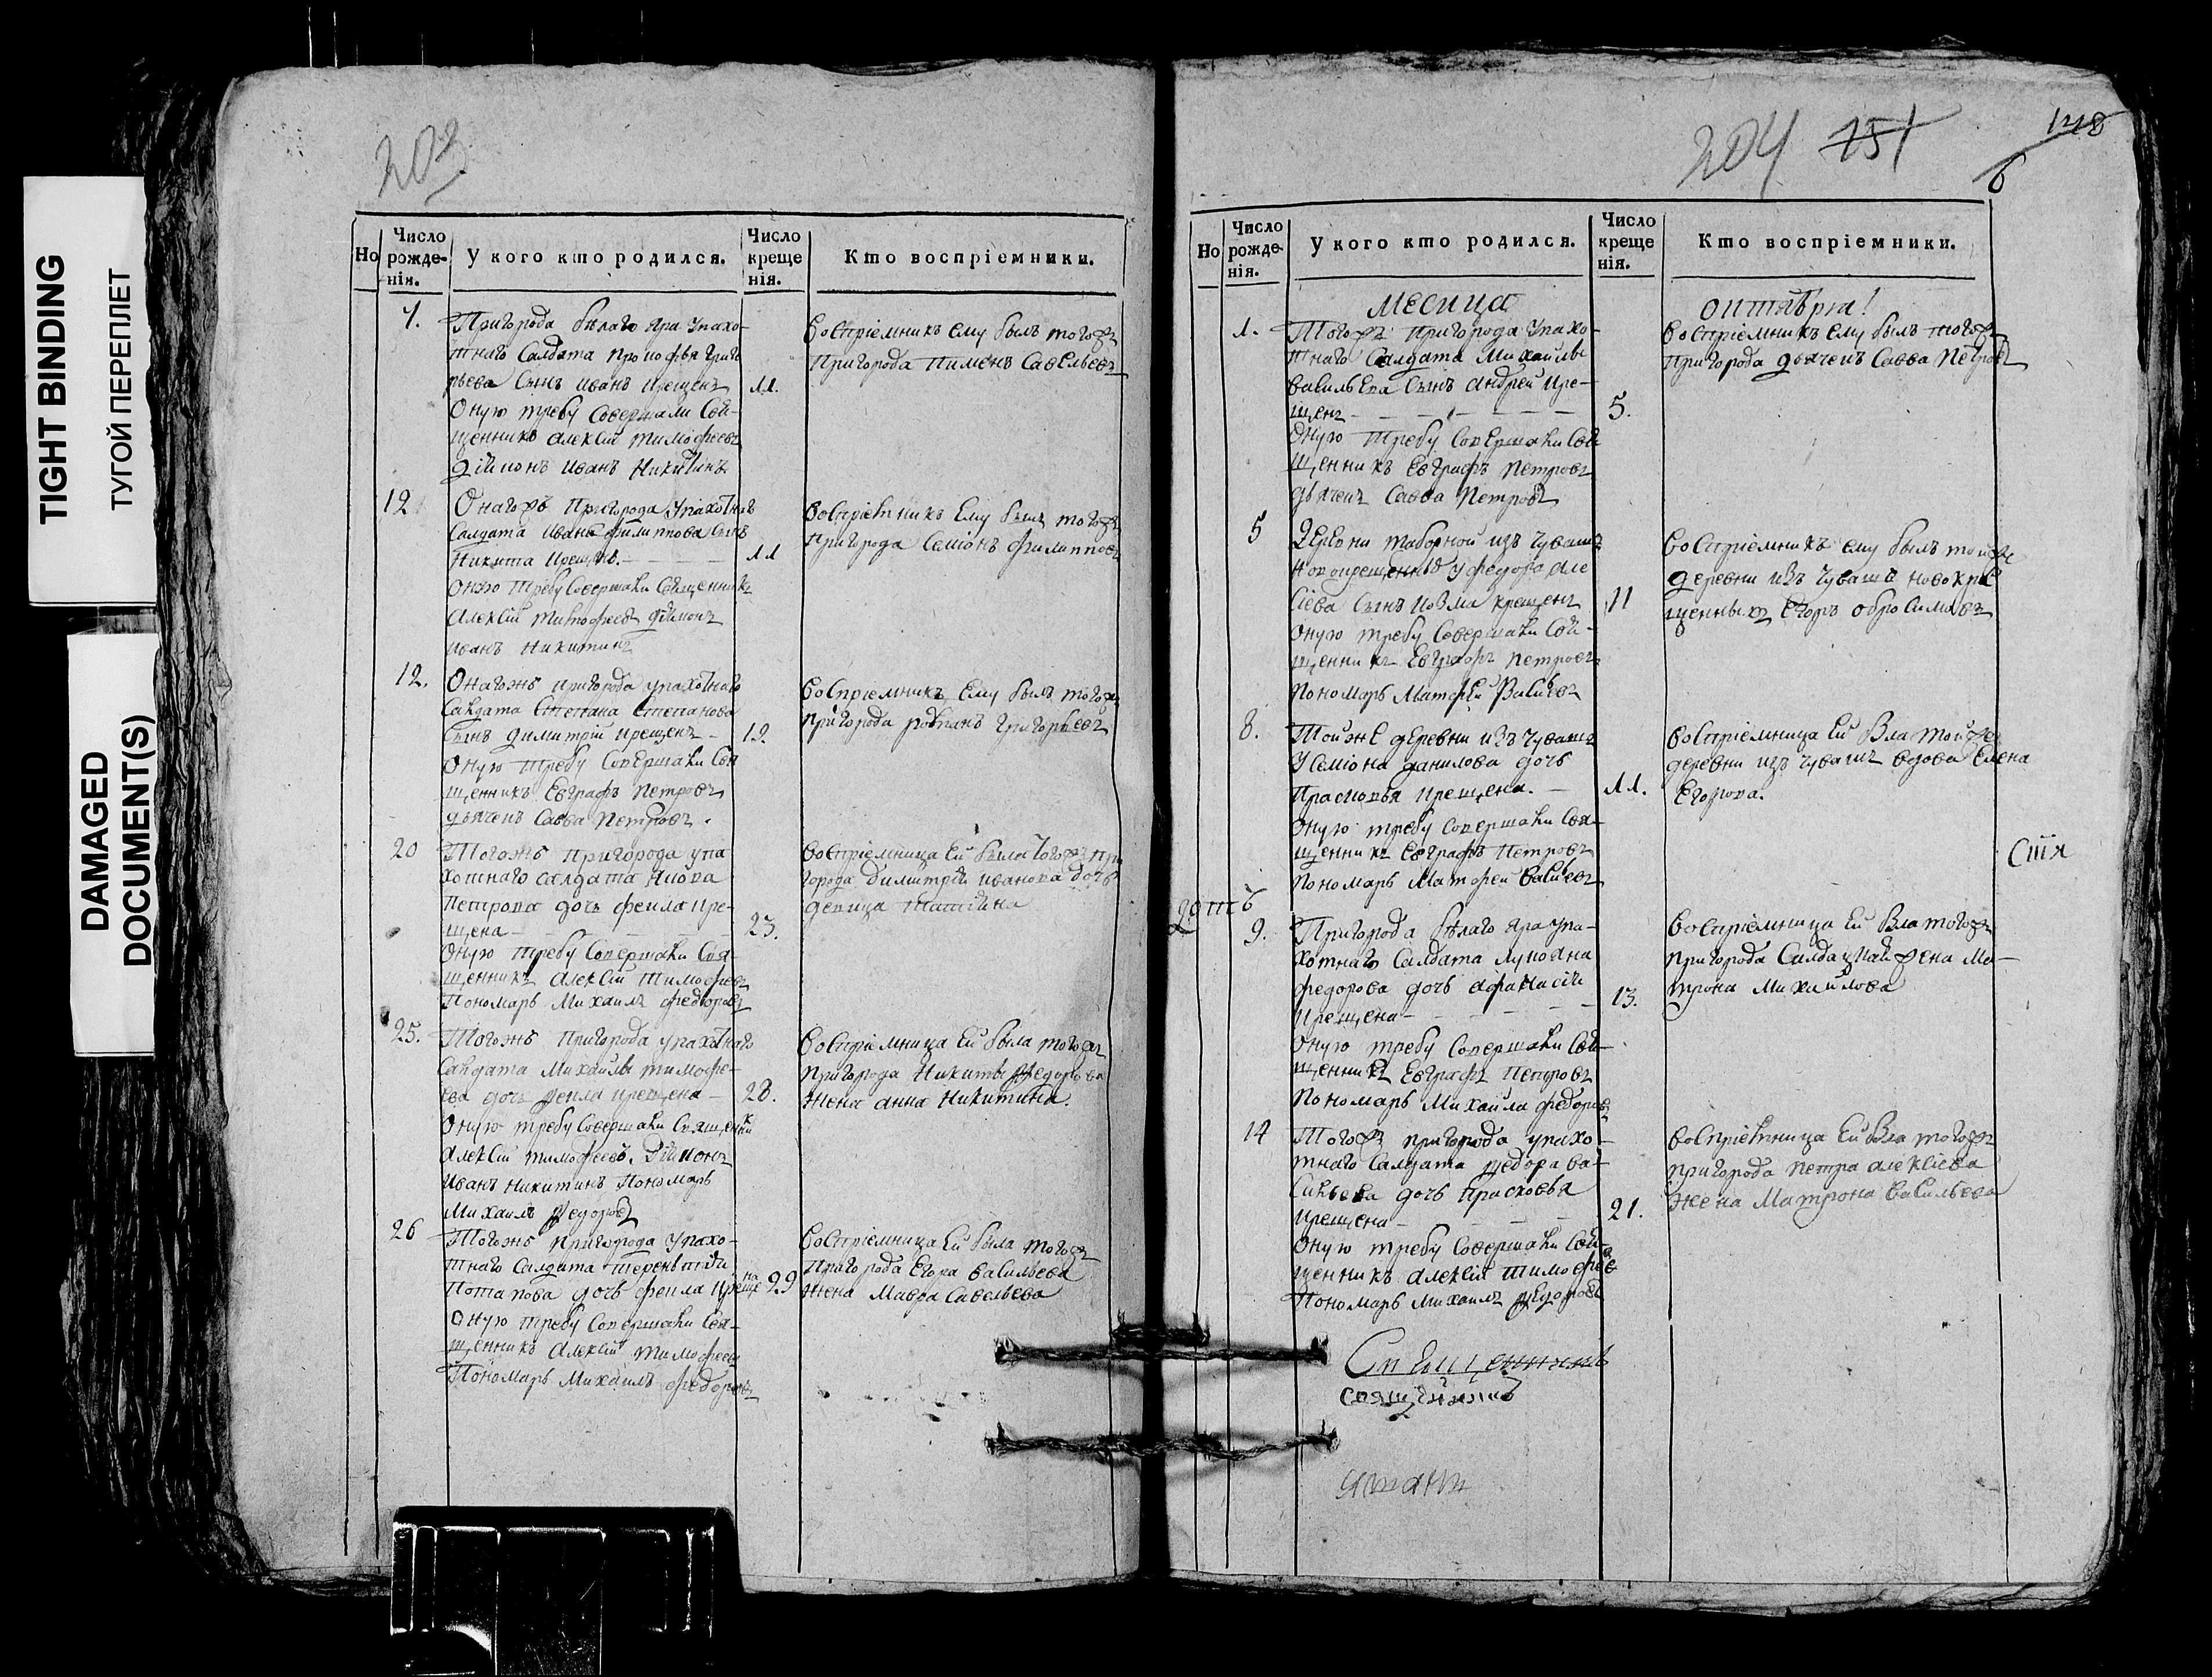 TIGHT BINDING
ТУГОЙ ПЕРЕПЛЕТ
DAMAGED
DOCUMENT(S)
203
Но
Число рожденія.
У кого кто родился.
Число крещенія.
Кто воспріемники.
7.
Пригорода бѣлаго яра Упахо-
тнаго Салдата прокофья григо
рьева Сынъ иванъ крещенъ
11.
Оную требу Совершали Свя-
щенникъ алексiй тимофеевъ
діяконъ иванъ Никитинъ
Воспріемникъ ему былъ тогожъ
Пригорода Пименъ Савельевъ
12
Онагожъ Пригорода Упахотнаго
Салдата Ивана филиппова Сынъ
Никита крещенъ. 11
Оную требу Совершали Священникъ
Алексiй Тимофеевъ діяконъ
иванъ Никитинъ
Воспріемникъ ему былъ тогожъ
Пригорода Семіонъ филипповъ
12.
Онагожъ пригорода упахотнаго
Салдата Степана Степанова
Сынъ димитрій крещенъ 12.
Оную требу Совершали Свя
щенникъ Евграфъ Петровъ
дьячекъ Савва Петровъ.
Воспріемникъ ему былъ тогожъ
пригорода романъ григорьевъ
20
Тогожъ пригорода упа
хотнаго салдата
Петрова дочь фекла кре-
щена 23.
Оную требу Совершали Свя-
щенникъ алексiй Тимофеевъ
Пономарь Михаилъ федоровъ
Воспріемница ей была тогожъ при
города димитрія иванова дочь
девица татіяна
25.
Тогожъ Пригорода упахотнаго
Салдата михайлы тимофе-
ева дочь фекла крещена 28.
Оную требу Совершали Священникъ
Алексiй тимофеевъ. Діяконъ
иванъ никитинъ Пономарь
Михаилъ федоровъ
Воспріемница ей была тогожъ
пригорода Никиты федорова
жена анна Никитина.
26
Тогожъ пригорода Упахо-
тнаго Салдата терентія
Потапова дочь фекла крещена 29
Оную требу Совершали Свя-
щенникъ алексiй тимофеевъ
Пономарь Михаилъ федоровъ
Воспріемница ей была тогожъ
Пригорода Егора васильева
жена Мавра Савельева
204 151
148
6
Но
Число рожденія.
У кого кто родился.
Число крещенія.
Кто воспріемники.
месица октября!
1.
Тогожъ пригорода Упахо-
тнаго Салдата Михайлы
васильева Сынъ андрей кре-
щенъ 5.
Оную требу Совершали Свя
щенникъ Евграфъ Петровъ
дьячекъ Савва Петровъ
Воспріемникъ ему былъ тогожъ
Пригорода дьячекъ Савва Петровъ
5
деревни таборной изъ чувашъ
новокрещенныхъ у федора але
Сіева Сынъ козма крещенъ 11
Оную требу Совершали Свя-
щенникъ Евграфъ Петровъ
Пономарь Матфей
Воспріемникъ ему былъ тойже
деревни изъ чувашъ новокре
щенныхъ Егоръ обросимовъ
8.
Тойже деревни изъ чувашъ
У Семіона данилова дочь
Прасковья крещена. 11.
Оную требу Совершали Свя-
щенникъ Евграфъ Петровъ
Пономарь Матфей
Воспріемница ей была тойже
деревни изъ чувашъ вдова Елена
Егорова.
Стія
9.
Пригорода бѣлаго яра упа-
хотнаго Салдата лукояна
федорова дочь афанасія
крещена 13.
Оную требу Совершали Свя-
щенникъ Евграфъ Петровъ
Пономарь Михайла федоровъ
Воспріемница ей была тогожъ
пригорода Салдацкая жена Ма-
трона Михайлова
14
Тогожъ пригорода упахо-
тнаго Салдата федора ва-
Сильева дочь Прасковья
крещена 21.
Оную требу Совершали Свя-
щенникъ алексiй тимофеевъ
Пономарь Михаилъ федоровъ
Воспріемница ей была тогожъ
пригорода петра алексіева
жена Матрона васильева
Священникъ
священникъ